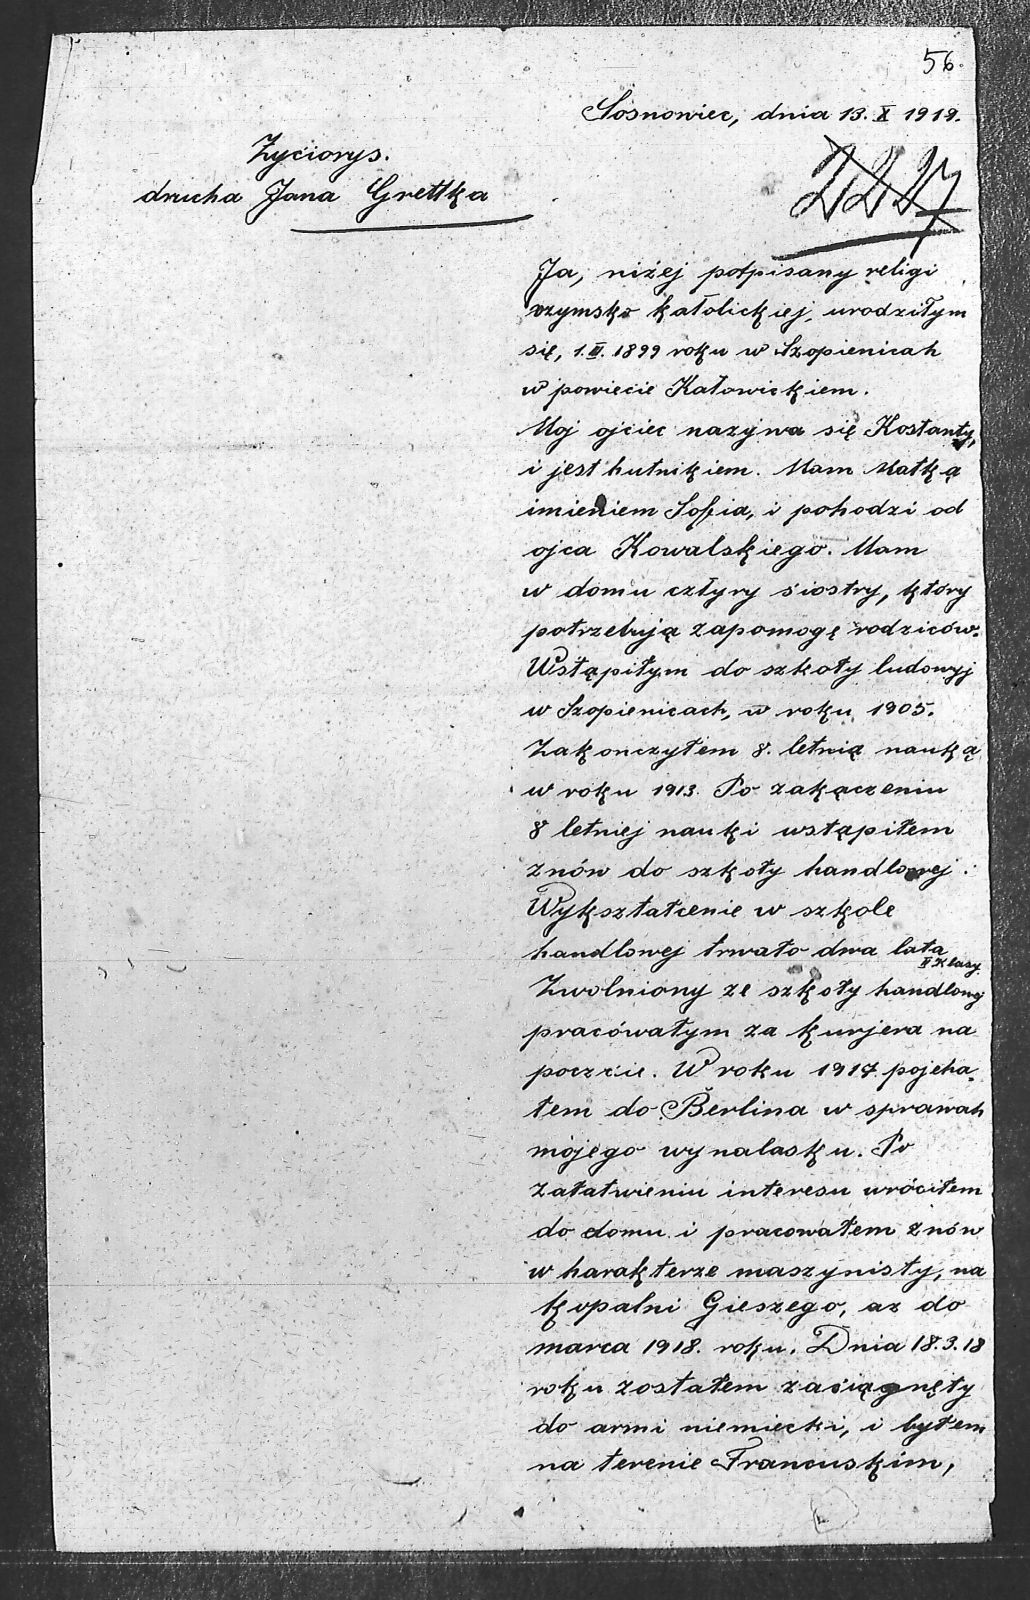 56.
Sosnowiec, dnia 13. X 1919.
Życiorys.
drucha Jana Grettka
2227
Ja, niżej potpisany religi
rzymsko katolickiej, urodziłym
się, 1.III. 1899 roku w Szopienicah
w powiecie Katowickiem.
Moj ojciec nazywa się Kostanty,
i jest hutnikiem. Mam Matką
imieniem Sofia, i pohodzi od
ojca Kowalskiego. Mam
w domu cztyry siostry, który
potrzebują zapomogę rodziców.
Wstąpiłym do szkoły ludowyj
w Szopienicach, w roku 1905.
Zakonczyłem 8. letnią nauką
w roku 1913. Po zakączeniu
8 letniej nauki wstąpiłem
znów do szkoły handlowej :
Wykształcenie w szkole
handlowej trwało dwa lata
II Klasy.
Zwolniony ze szkoły handlowej
pracówałym za kurjera na
poczcie. W roku 1917 pojeha-
łem do Berlina w sprawah
mojego wynalasku. Po
załatwieniu interesu wróciłem
do domu i pracowałem znów
w harakterze maszynisty, na
kopalni Gieszego, az do
marca 1918. roku. Dnia 18.3.18
roku zostałem zaciągnęty
do armi niemiecki, i byłem
na terenie Francuskim,